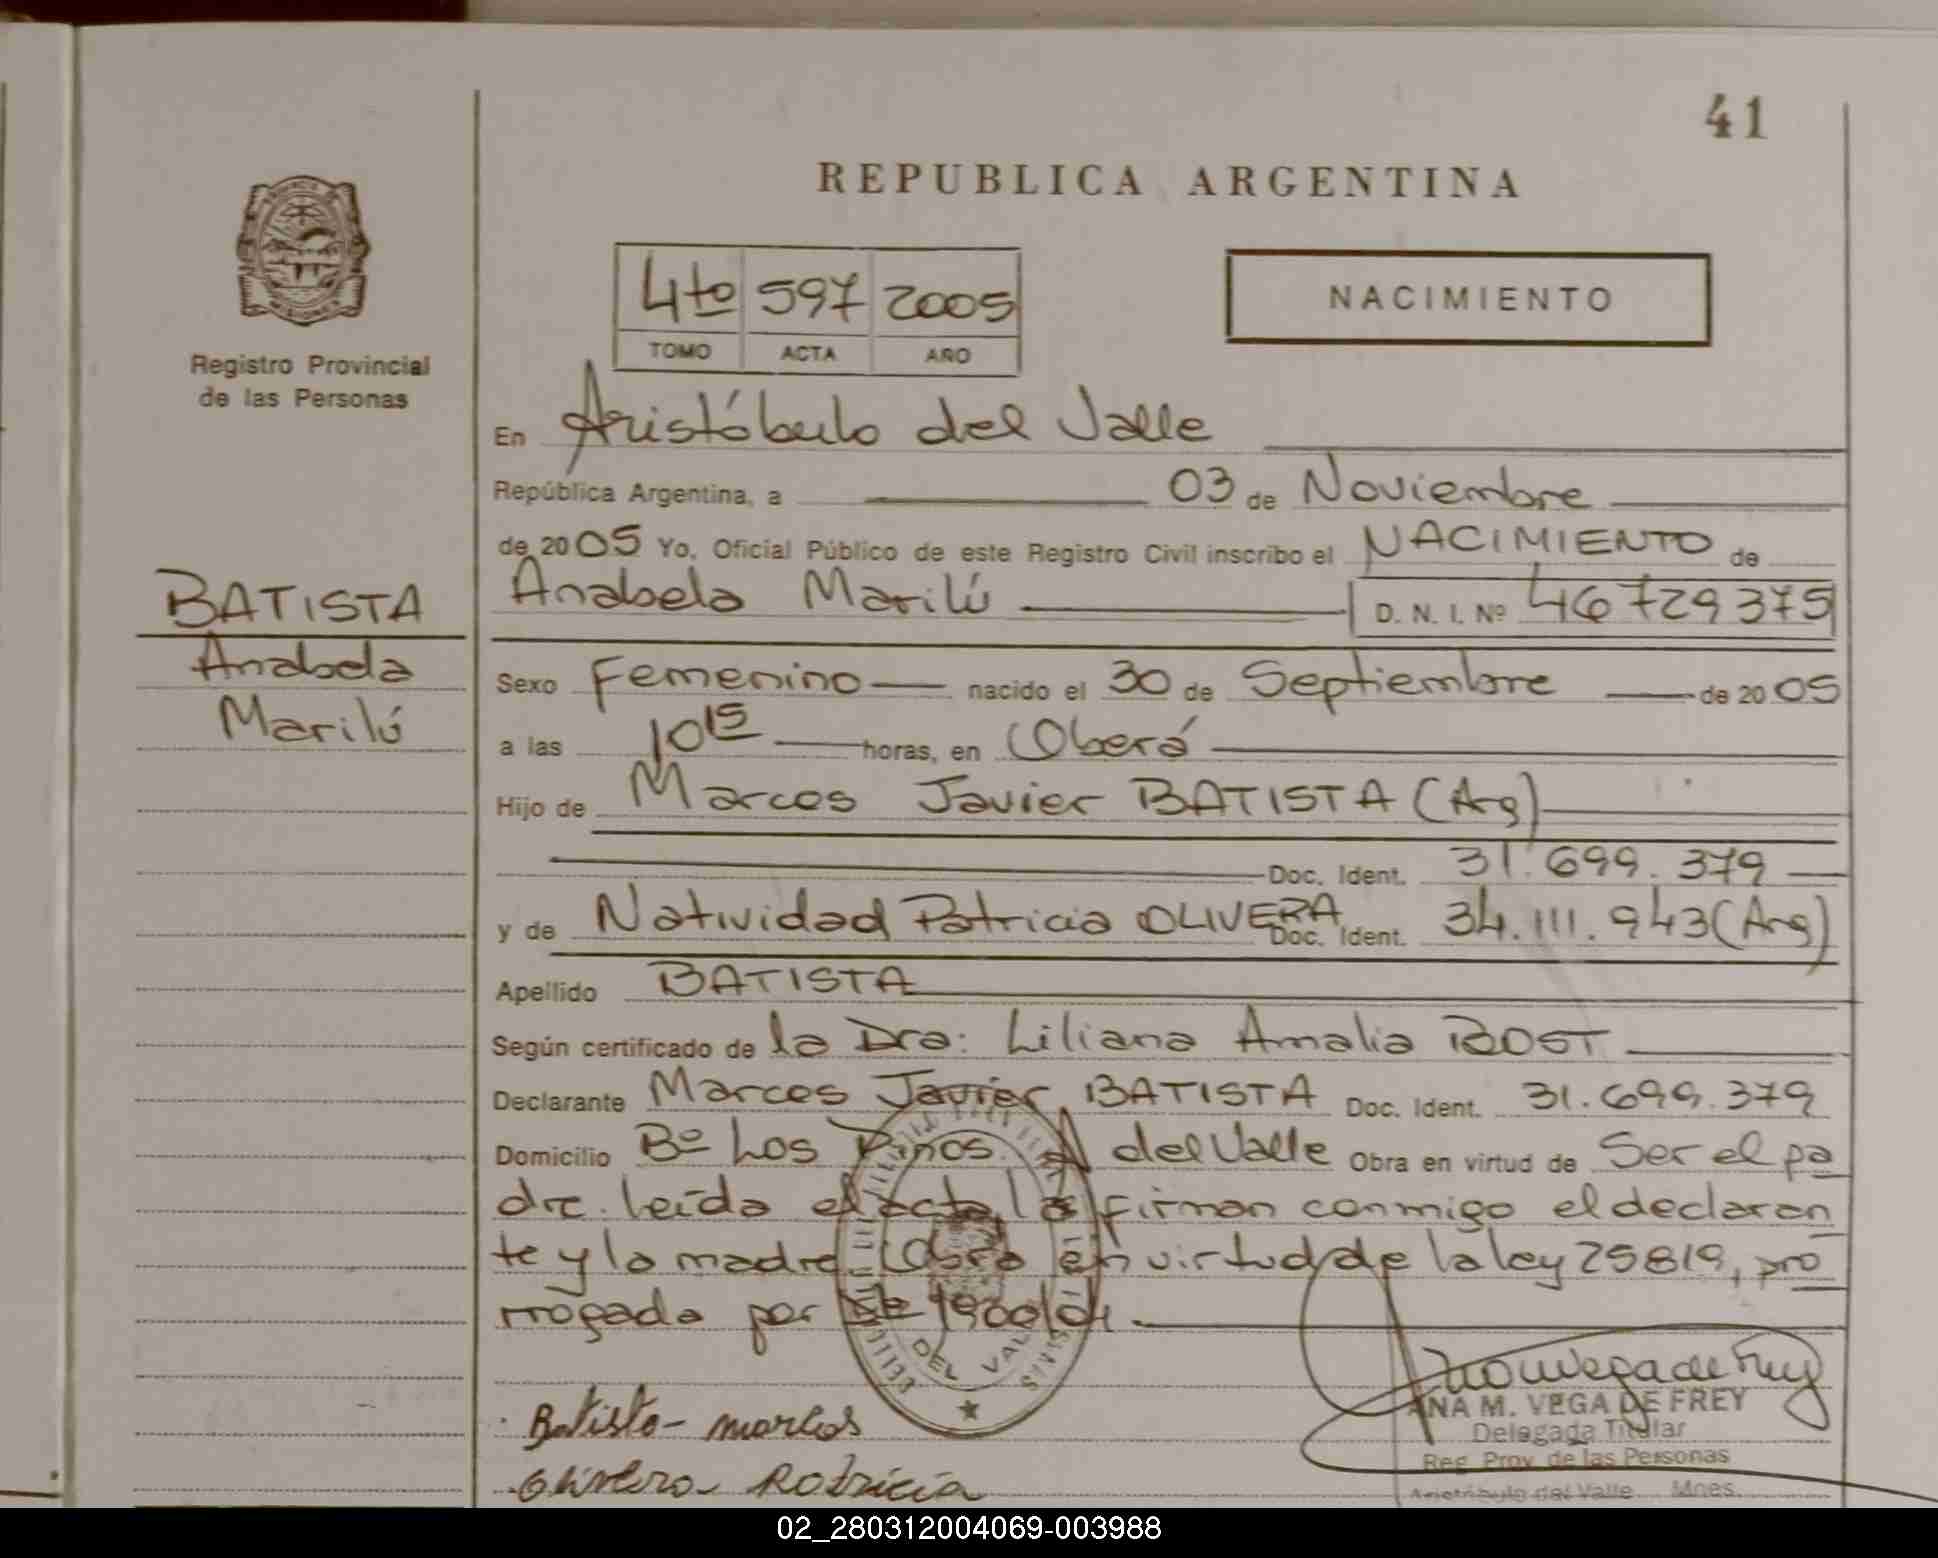 41
REPUBLICA ARGENTINA
4to 597 2005
TOMO ACTA AÑO
NACIMIENTO
Registro Provincial
de las Personas
BATISTA
Anabela
Marilú
En Aristóbulo del Valle
República Argentina, a 03 de Noviembre
de 2005 Yo, Oficial Público de este Registro Civil inscribo el NACIMIENTO de
Anabela Marilú D. N. I. Nº 46729375
Sexo Femenino nacido el 30 de Septiembre de 2005
a las 10 15 horas, en Oberá
Hijo de Marcos Javier BATISTA (Arg)
Doc. Ident. 31.699.379
y de Natividad Patricia OLIVERA Doc. Ident. 34.111.943 (Arg)
Apellido BATISTA
Según certificado de la Dra: Liliana Amalia
Declarante Marcos Javier BATISTA Doc. Ident. 31.699.379
Domicilio Bº Los Pinos. A del Valle Obra en virtud de Ser el pa
dre. leída el acta la firman conmigo el declaran
te y la madre. Obra en virtud de la ley 25819, pro
rrogada por
DEL VALLE
Batista marcos
Olivera Patricia
ANA M. VEGA DE FREY
Delegada Titular
Reg. Prov. de las Personas
Aristóbulo del Valle Mnes.
02_280312004069-003988